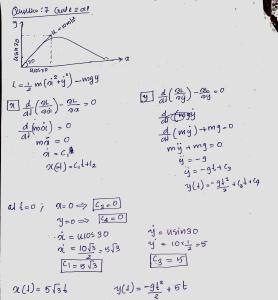 Question: 7 Gate 2021
y
u = 10 m/s
usin30
30
ucos30
x
L = 1/2 m(ẋ² + ẏ²) - mgy
x d/dt (∂L/∂ẋ) - ∂L/∂x = 0
d/dt (mẋ) = 0
mẍ = 0
ẋ = C₁
x(t) = C₁t + C₂
y d/dt (∂L/∂ẏ) - ∂L/∂y = 0
d/dt (mẏ) + mg = 0
mÿ + mg = 0
ÿ = -g
ẏ = -gt + C₃
y(t) = -gt²/2 + C₃t + C₄
at t=0; x=0 ⇒ C₂=0
y=0 ⇒ C₄=0
ẋ = ucos30
ẋ = 10√3/2 = 5√3
C₁ = 5√3
ẏ = usin30
ẏ = 10×1/2 = 5
C₃ = 5
x(t) = 5√3 t y(t) = -gt²/2 + 5t